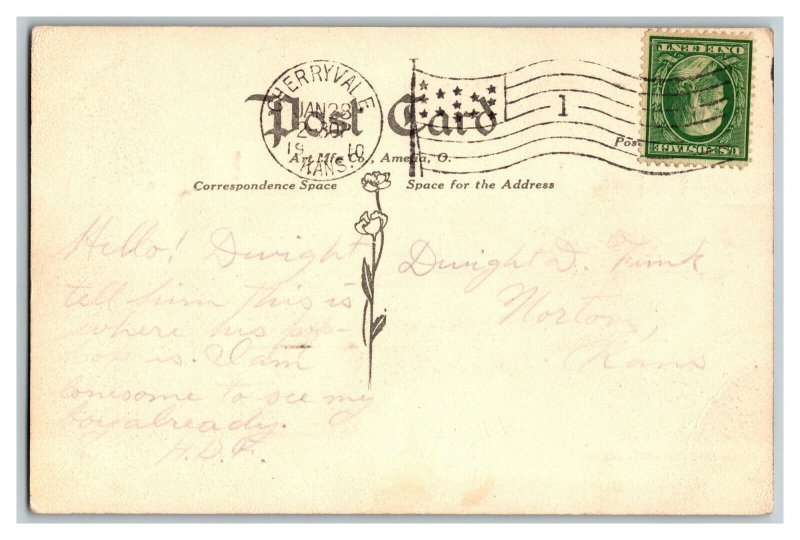 CHERRYVALE
JAN 28
2-30P
19 10
KANS.
1
ONE CENT
U.S. POSTAGE
Post Card
Art Mfg Co., Amelia, O.
Post
Correspondence Space
Space for the Address
Hello! Dwight
tell him this is
where his pop-
pop is. I am
lonesome to see my
boy already.
H.D.F.
Dwight D. Funk
Norton,
Kans